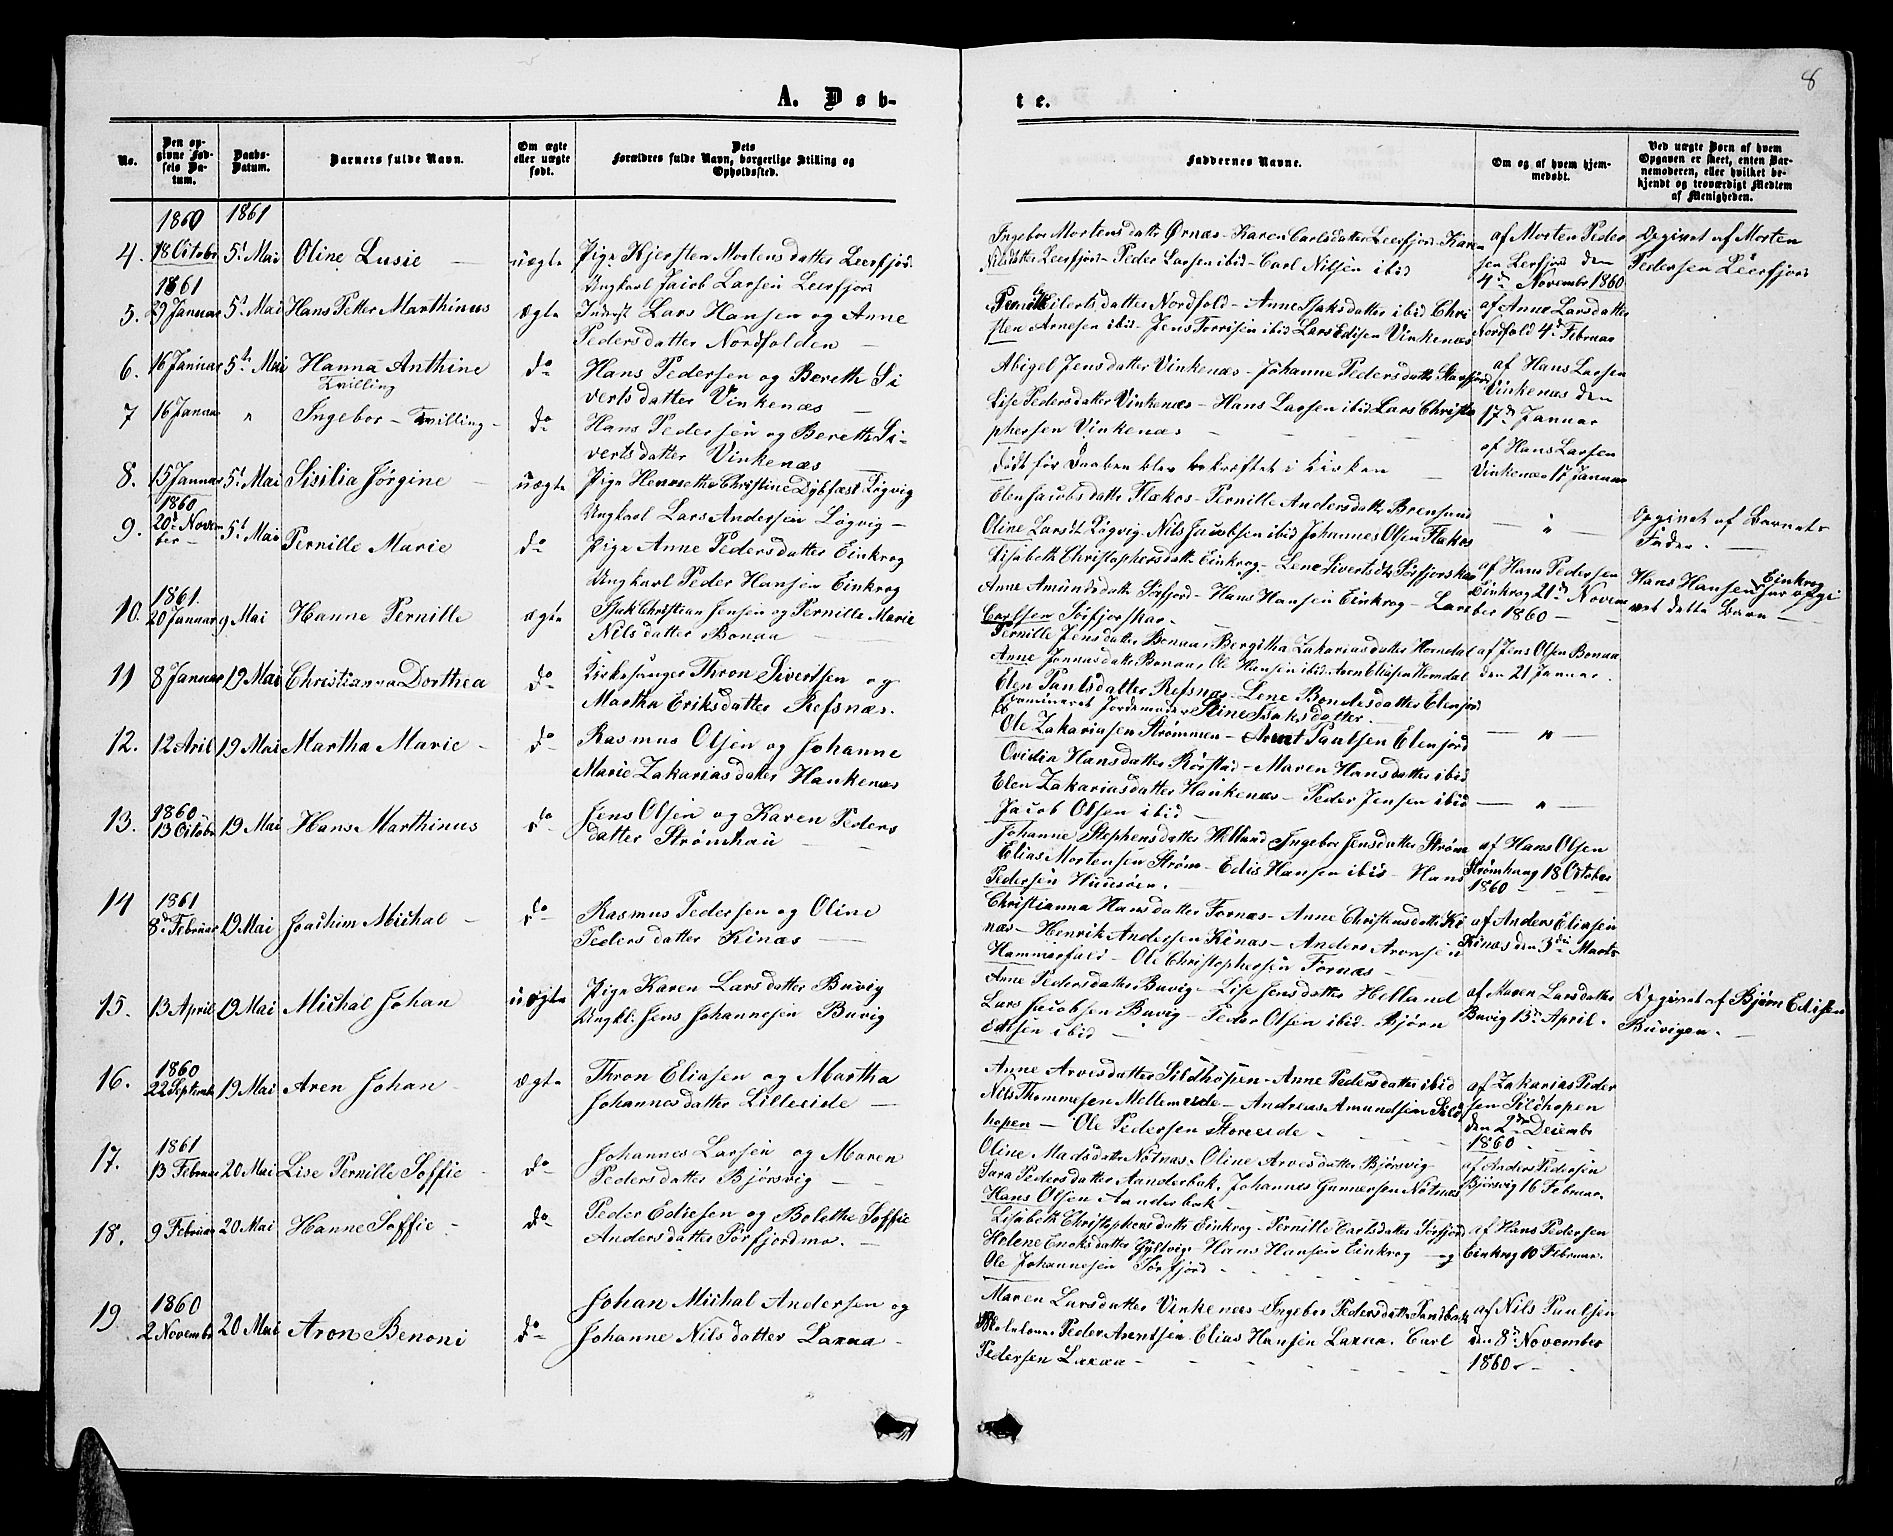 8
A. Døb-
te.
No.
Den opgivne Fødsels Datum.
Daabs-Datum.
Barnets fulde Navn.
Om ægte eller uægte født.
Dets Forældres fulde Navn, borgerlige Stilling og Opholdssted.
Faddernes Navne.
Om og af hvem hjemmedøbt.
Ved uægte Børn af hvem Opgaven er skeet, enten Barnemoderen, eller hvilket bekjendt og troværdigt Medlem af Menigheden.
1860 1861
4. 18 Octobr 5t Mai Oline Lusie — uægte Pige Kjersten Mortensdatter Leerfjord.
Ungkarl Jacob Larsen Leerfjord
Ingebor Mortensdatter Ørnæs - Karen Carlsdatter Leerfjord - Karen
Nilsdatter Leerfjord - Peder Larsen ibid - Carl Nilsen ibid
af Morten Peder
sen Lerfjord den
4de November 1860
Opgivet af Morten
Pedersen Leerfjord
1861
5. 29 Januar 5t Mai Hans Petter Marthinus ægte Inderst Lars Hansen og Anne
Pedersdatter Nordfolden —
Eilertsdatter Nordfold - Anne Isaksdatter ibid Chri
sten Arnesen ibid - Jens Torrisen ibid Lars Edisen Vinkenæs
af Anne Larsdatter
Nordfold 4de Februar
6. 16 Januar 5te Mai Hanna Anthine
Tvilling
do Hans Pedersen og Bereth Si
vertsdatter Vinkenæs —
Abigel Jensdatter Vinkenæs - Johanne Pedersdatter
Lise Pedersdatter Vinkenæs - Hans Larsen ibid Lars Christo
phersen Vinkenæs
af Hans Larsen
Vinkenæs den
17de Januar
7 16 Januar " Ingebor - Tvilling - do Hans Pedersen og Bereth Si-
vertsdatter Vinkenæs —
Dødt før Daaben blev bekræftet i Kirken
af Hans Larsen
Vinkenæs 17 Januar
8. 15 Januar 5t Mai Sisilia Jørgine — uægte Pige Henrette Christine Dybfæst Løgvig
Ungkarl Lars Andersen Løgvig —
Elen Jacobsdatter Flækos - Pernille Andersdatter Brensund
Oline Larsdt Løgvig Nils Jacobsen ibid Johannes Olsen Flækos
— " —
Opgivet af Barnets
Fader. —
1860
9. 20de Novem
ber — 5t Mai Pernille Marie do Pige Anne Pedersdatter Einkrog
Ungkarl Peder Hansen Einkrog
Lisabeth Christophersdatter Einkrog - Lene Sivertsdt Sørfjorskar
Anne Amundsdatter Sørfjord - Hans Hansen Einkrog - Lars
Carlsen Sørfjorskar -
af Hans Pedersen
Einkrog 21de Novem
ber 1860 —
Hans Hansen Einkrog
har opgi
vet dette Barn —
1861.
10. 20 Januar 9 Mai Hanne Pernille ægte Isak Christian Jensen og Pernille Marie
Nilsdatter Bonaa —
Pernille Jensdatter Bonaas Bergitha Zakariasdatter Horndal
Anne Jonnasdatter Bonaas Ole Hansen ibid Aren Eliasen Horndal
af Jens Olsen Bonaa
den 21 Januar.
11 8 Januar 19 Mai Christianna Dorthea do Kirkesanger Thron Sivertsen og
Martha Eriksdatter Refsnæs.
Elen Paulsdatter Refsnæs - Lene Bendesdatter Elenjord
Examineret Jordemoder Stine Isaksdatter —
Ole Zakariasen Strømmen - Arent Paulsen Elenjord
— " —
12. 12 Aril 19 Mai Martha Marie - do Rasmus Olsen og Johanne
Marie Zakariasdatter Hankenæs
Ovidia Hansdatter Rørstad - Maren Hansdatter ibid
Elen Zakariasdatter Hankenæs - Peder Jensen ibid
Jacob Olsen ibid —
— " —
1860
13. 13 Octobr 19 Mai Hans Marthinus do Jens Olsen og Karen Peders
datter Strømhau —
Johanne Stephensdatter Helland Ingebor Jensdatter Strøm
Elias Mortensen Strøm - Edis Hansen ibid - Hans
Pedersen Hunsøen. -
af Hans Olsen
Strømhaug 18 October
1860
1861
14 8de Februar 19 Mai Joachim Michal — do Rasmus Pedersen og Oline
Pedersdatter Kinæs —
Christianna Hansdatter Fornæs - Anne Christensdatter Ki
næs - Henrik Andersen Kinæs - Anders Aronsen
Hammerfald - Ole Christophersen Fornæs -
af Anders Eliasen
Kinæs den 3die Marts
15. 13 April 19 Mai Michal Johan uægte Pige Karen Larsdatter Buvig
Ungkl. Jens Johannesen Buvig
Anne Pedersdatter Buvig - Lise Jensdatter Helland
Lars Jacobsen Buvig - Peder Olsen ibid. Bjørn
Edisen ibid —
af Maren Larsdatter
Buvig 13de April.
Opgivet af Bjørn Edisen
Buvigen. —
1860
16. 22 Septembr 19 Mai Aren Johan - ægte Thron Eliasen og Martha
Johannesdatter Lilleeide —
Anne Arvesdatter Sildhopen - Anne Pedersdatter ibid
Nils Thommesen Mellemeide - Andreas Amundsen Sild
hopen — Ole Pedersen Storeeide -
af Zakarias Peder
sen Sildhopen
den 2den Decembr
1860
1861
17. 13 Februar 20 Mai Lise Pernille Soffie - do Johannes Larsen og Maren
Pedersdatter Bjørsvig —
Oline Madsdatter Nøtnæs - Oline Arvesdatter Bjørsvig
Sara Pedersdatter Aanderbak, Johannes Gunnersen Nøtnæs
Hans Olsen Aanderbak
af Anders Pedersen
Bjørsvig 16 Februar.
18. 9 Februar 20 Mai Hanne Soffie - do Peder Ediesen og Bolethe Soffie
Andersdatter Sørfjordmo. —
Lisabeth Christophersdatter Einkrog - Pernille Carlsdatter Sørfjord
Helene Enoksdatter Gyltvig - Hans Hansen Einkrog — og
Ole Johannesen Sørfjord -
af Hans Pedersen
Einkrog 10 Februar.
1860
19 2 Novembr 20 Mai Aron Benoni do Johan Michal Andersen og
Johanne Nilsdatter Laxaa -
Maren Larsdatter Vinkenæs - Ingebor Pedersdatter Sandbak
Peder Arentsen - Elias Hansen Laxaa. Carl
Pedersen Laxaa —
af Nils Paulsen
den 8de November
1860 -